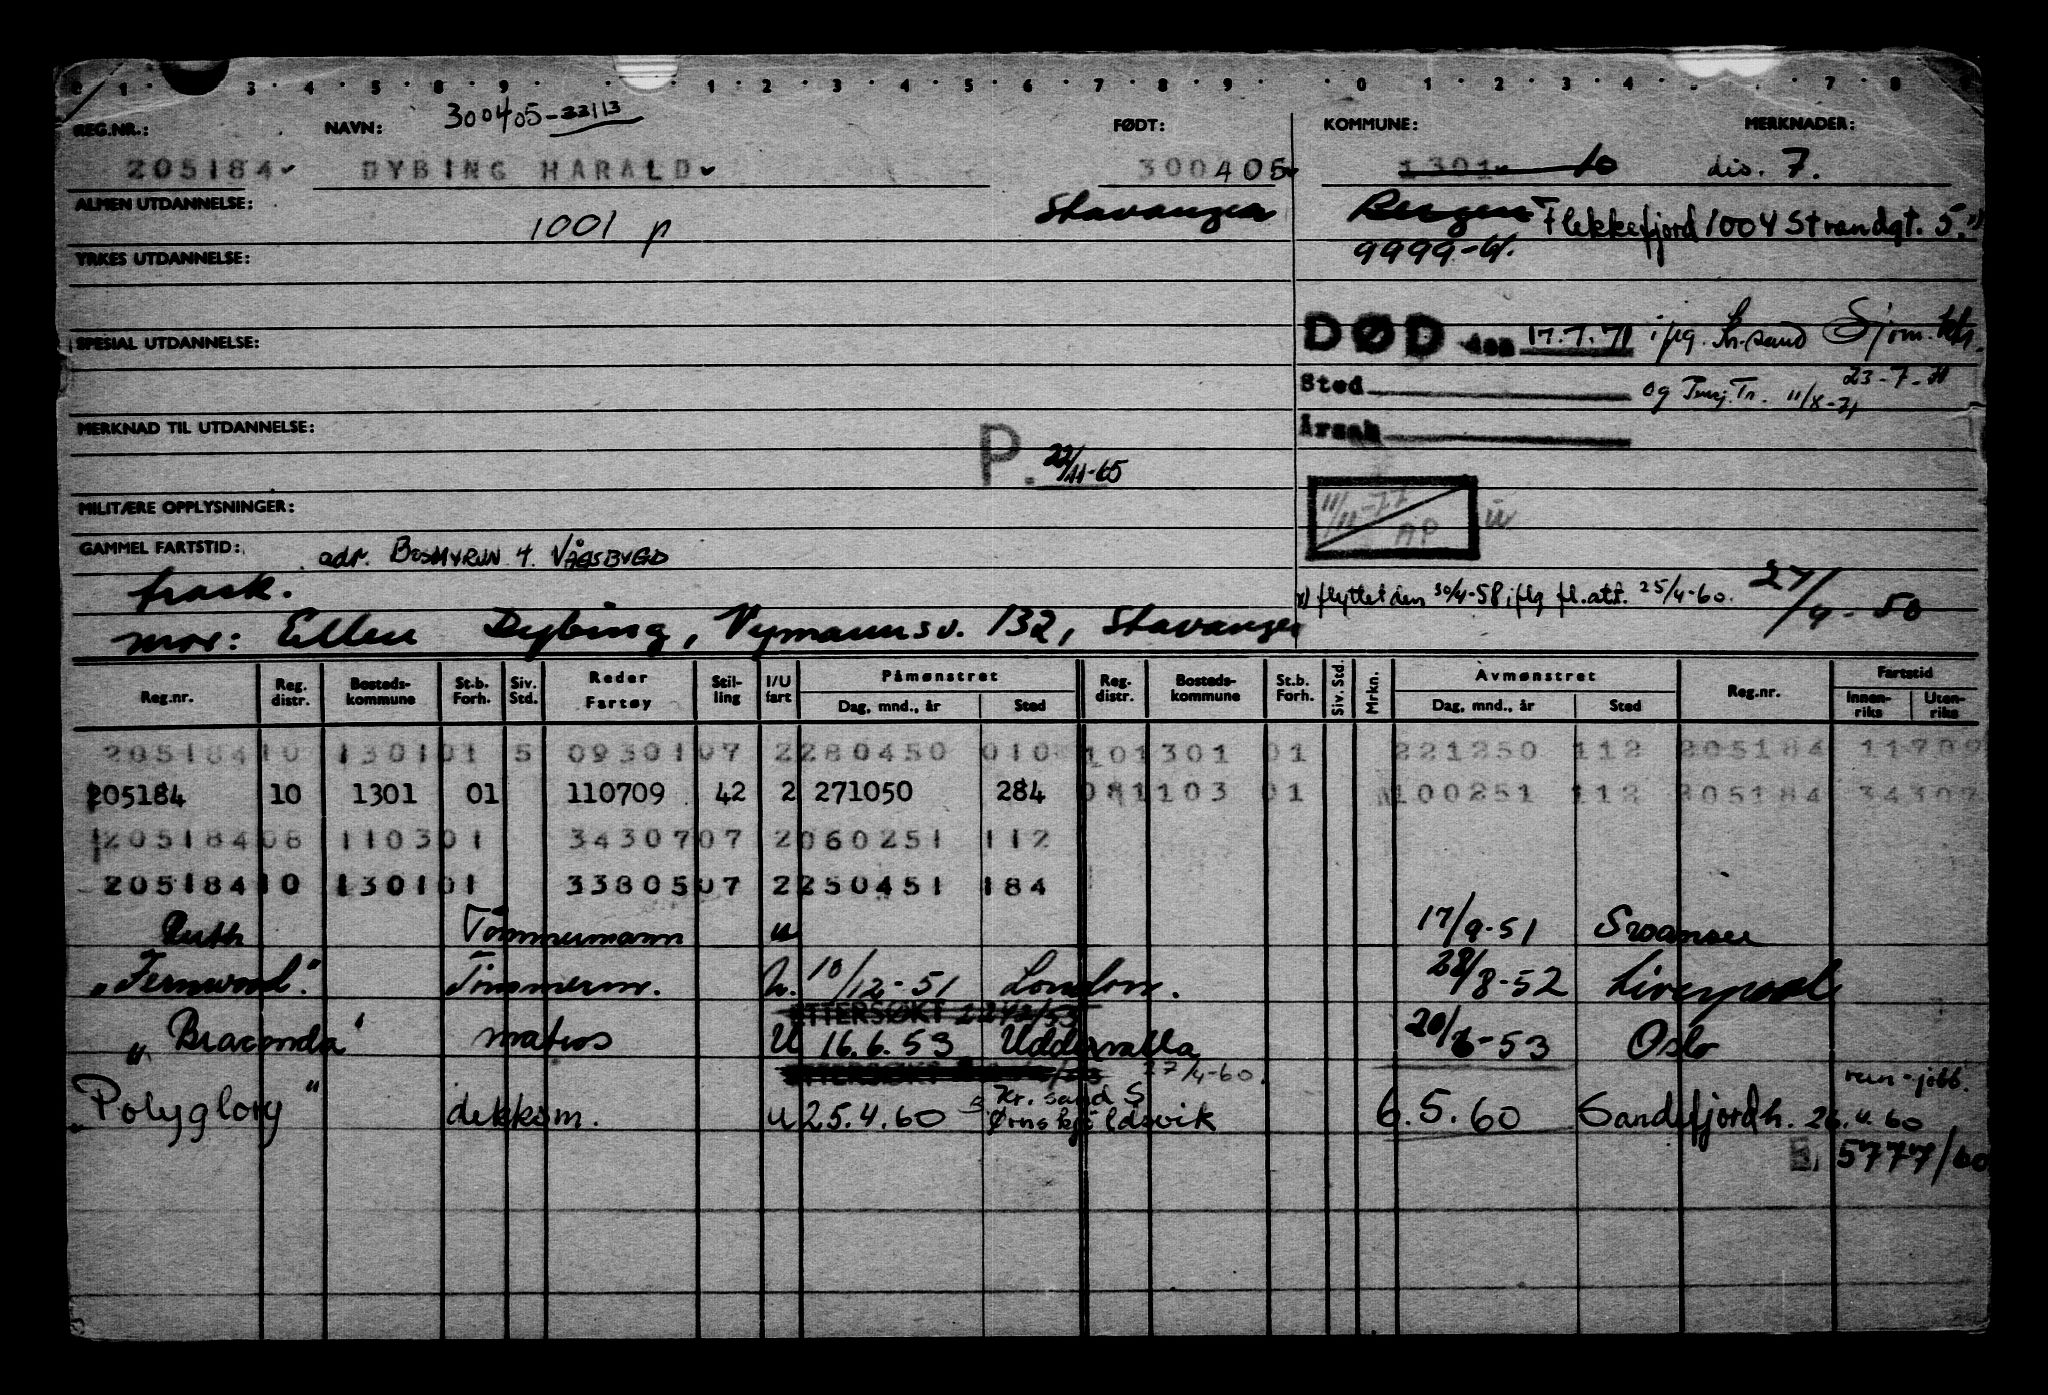 1 3 4 5 8 9 1 2 3 4 5 6 7 8 9 0 1 2 3 4 7 8
300405-33113
REG.NR.: NAVN: FØDT: KOMMUNE: MERKNADER:
205184 DYBING HARALD 300405 1301 10 dis. 7.
ALMEN UTDANNELSE: 1001 p Stavanger Bergen Flekkefjord 1004 Strandgt. 5. x)
YRKES UTDANNELSE: 9999-61.
SPESIAL UTDANNELSE:
DØD den 17.7.71 iflg. Kr.sand Sjøm.ktr.
23-7-71
Sted og 11/8-71
Årsak
MERKNAD TIL UTDANNELSE:
P. 22/11-65
MILITÆRE OPPLYSNINGER:
11/11-77 AP
GAMMEL FARTSTID: adr. BOSMYRUN 4. VÅGSBYGD
frask.
x) flyttet den 30/4-58 iflg fl.att. 25/4-60. 27/9-50
mor: Ellen Dybing, Vymannsv. 132, Stavanger
Reg.nr. Reg. distr. Bosteds-kommune St.b. Forh. Siv. Std. Reder Fartøy Stil-ling I/U fart Påmønstret Dag, mnd., år Sted Reg. distr. Bosteds-kommune St.b. Forh. Siv. Std. Mrkn. Avmønstret Dag, mnd., år Sted Reg.nr. Fartstid Innen-riks Uten-riks
205184 10 1301 01 5 09301 07 2 280450 010 10 1301 01 221250 112 205184 11709
205184 10 1301 01 110709 42 2 271050 284 08 1103 01 100251 112 205184 34307
205184 08 1103 01 34307 07 2 060251 112
205184 10 1301 01 33805 07 2 250451 184
Ruth Tömmermann u 17/9-51 Swansea
"Fernwood." Tömmerm. u. 10/12-51 London. 28/8-52 Liverpool
ETTERSØKT
"Braconda" matros U 16.6.53 Uddevalla 20/6-53 Oslo
ETTERSØKT 27/4-60.
run-jobb.
"Polyglory" dekksm. u 25.4.60 Kr. sand S Ørnskjöldsvik 6.5.60 Sandefjord h. 26.4.60
5777/60